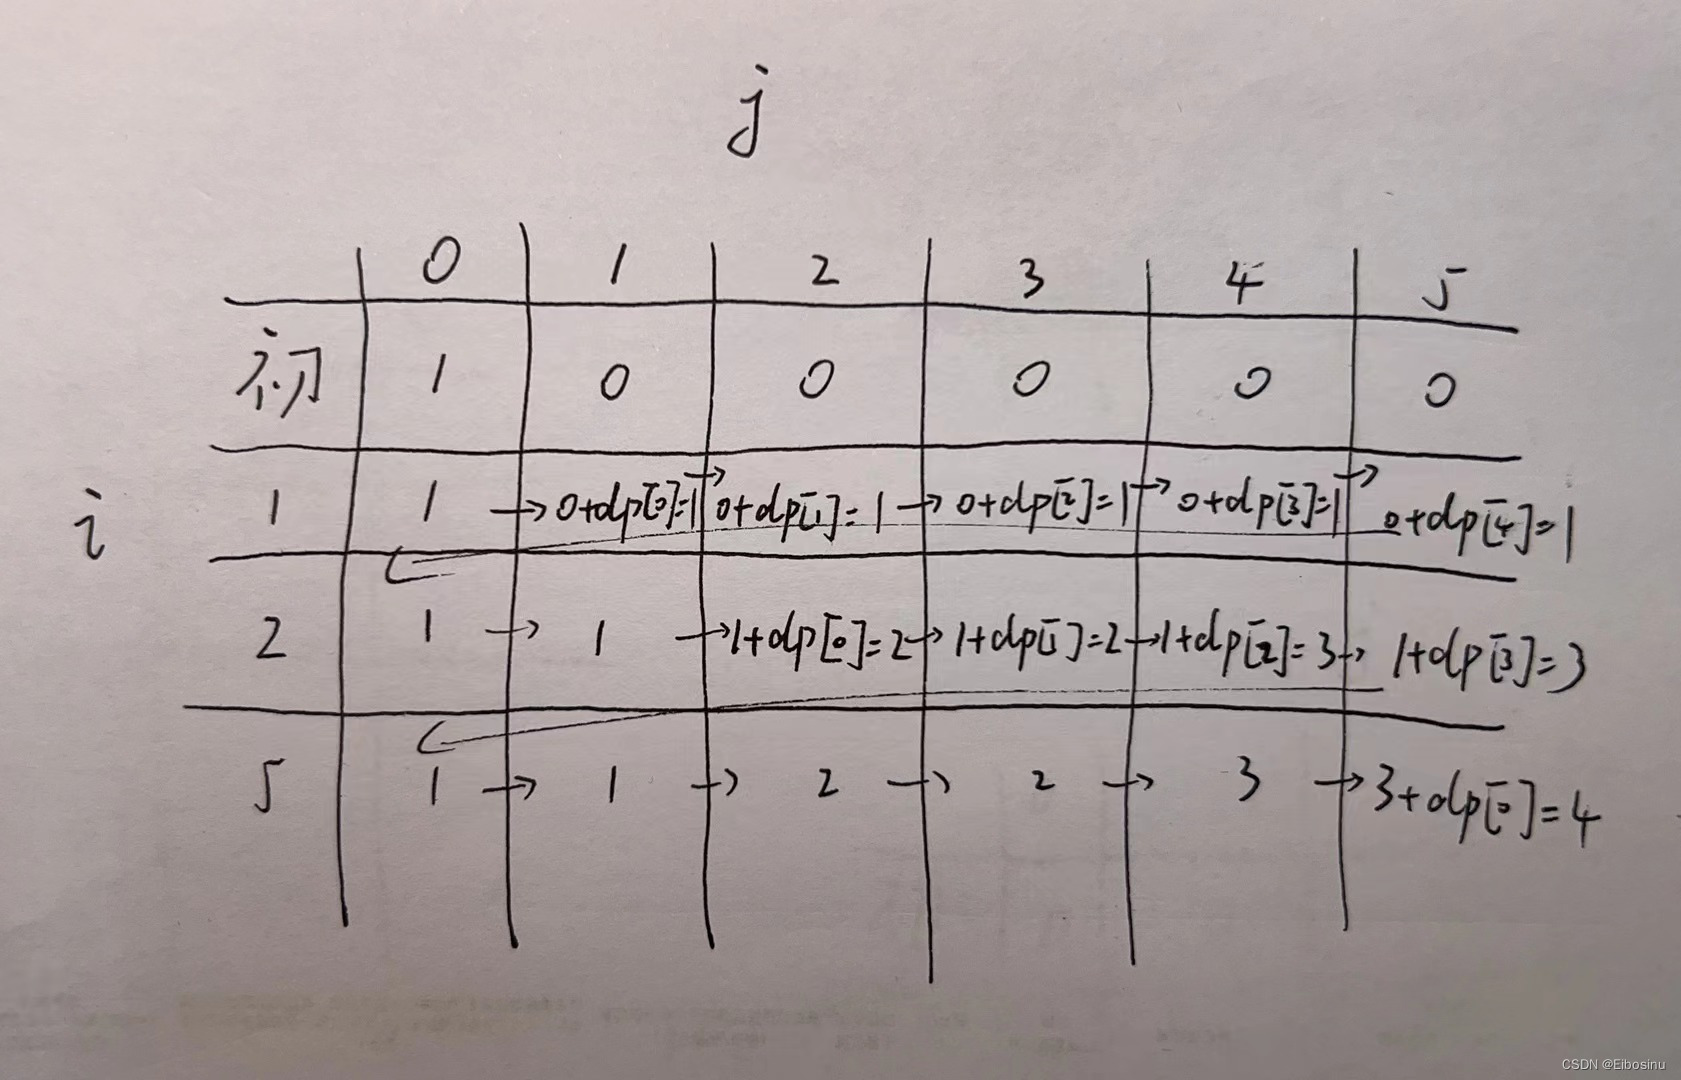 j
0 1 2 3 4 5
初 1 0 0 0 0 0
i
1 1 → 0+dp[0]=1 → 0+dp[1]=1 → 0+dp[2]=1 → 0+dp[3]=1 → 0+dp[4]=1
2 1 → 1 → 1+dp[0]=2 → 1+dp[1]=2 → 1+dp[2]=3 → 1+dp[3]=3
5 1 → 1 → 2 → 2 → 3 → 3+dp[0]=4
CSDN @Eibosinu